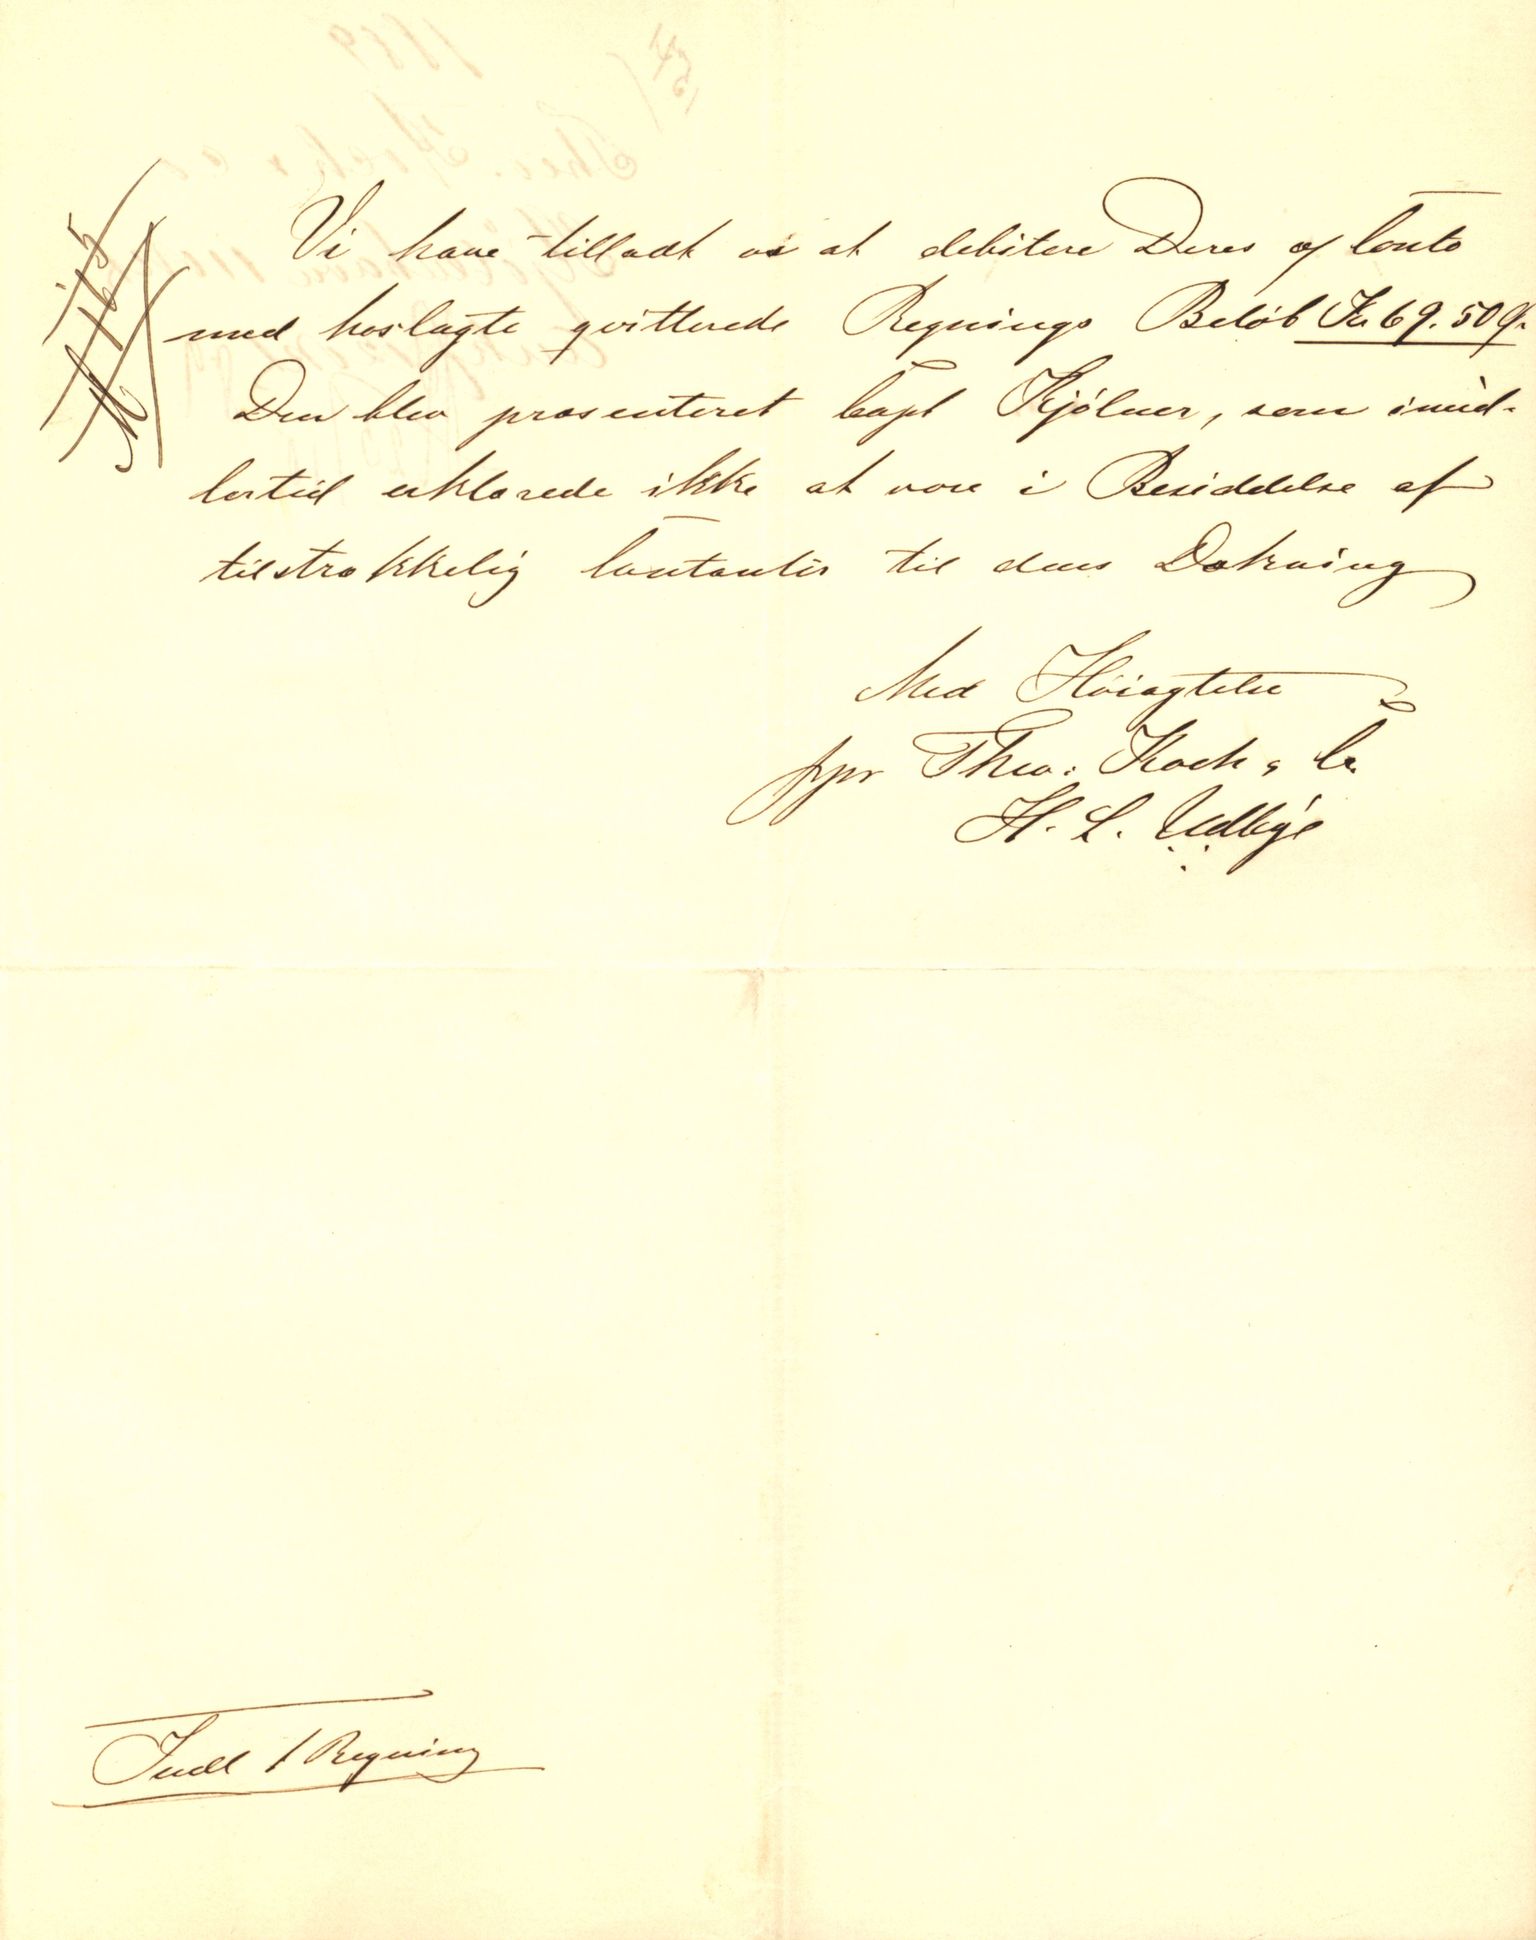 Vi have tilladt os at debitere Deres og Conto
med hoslagte qvitterede Regnings Beløb Kr 69.50 Ø.
Den blev præsenteret Capt Kjölner, som imid-
lertid erklærede ikke at være i Besiddelse af
tilstrækkelig Contanter til dens Dækning
Med Höiagtelse
ppr Theo: Koch & Co
H. L. Udbye
Indl 1 Regning